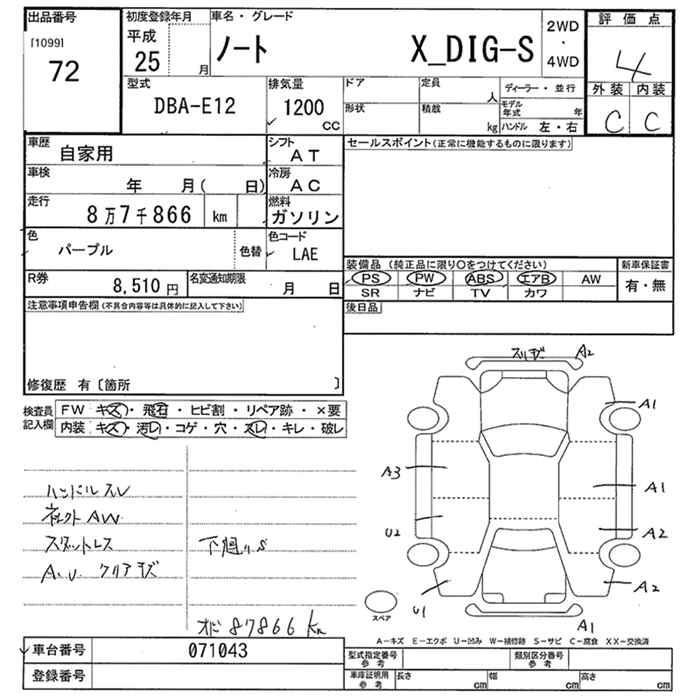 出品番号
[1099]
72
初度登録年月
平成
25 月
車名・グレード
ノート X_DIG-S
2WD
・
4WD
評価点
4
外装 内装
C C
型式
DBA-E12
排気量
1200
CC
ドア
定員
人
形状
積載
kg
ディーラー・並行
モデル年式 年
ハンドル 左・右
車歴
自家用
シフト
AT
車検
年 月( 日)
冷房
AC
走行
8万7千866 km
燃料
ガソリン
色
パープル
色替
色コード
LAE
R券
8,510 円
名変通知期限
月 日
セールスポイント(正常に機能するものに限ります)
装備品 (純正品に限り○をつけてください)
PS PW ABS エアB AW
SR ナビ TV カワ
新車保証書
有・無
後日品
注意事項申告欄(不具合内容等は具体的に記入して下さい)
修復歴 有〔箇所 〕
検査員
記入欄
FW キズ・飛石・ヒビ割・リペア跡・×要
内装 キズ・汚レ・コゲ・穴・スレ・キレ・破レ
ハンドルスレ
社外AW
スタットレス
A.U. クリアキズ
下廻りS
メーター 87866 km
スリキズ A2
A1
A3
A1
U2
A2
A2
U1
A1
スペア
A-キズ E-エクボ U-凹み W-補修跡 S-サビ C-腐食 XX-交換済
車台番号
071043
登録番号
型式指定番号
参考
類別区分番号
参考
車庫証明用
参考
長さ cm
幅 cm
高さ cm